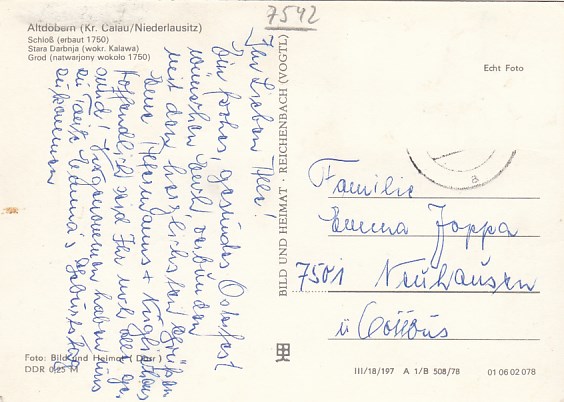 7542
Altdöbern (Kr. Calau/Niederlausitz)
Schloß (erbaut 1750)
Stara Darbnja (wokr. Kalawa)
Grod (natwarjony wokoło 1750)
Echt Foto
Ihr Lieben Alle!
Ein frohes, gesundes Osterfest
wünschen Euch, verbunden
mit den herzlichsten Grüßen
Eure Herrmanns +
Hoffentlich seid Ihr noch alle ge-
sund! Vorgenommen haben wir uns
zu Tante Emma's Geburtstag
zu kommen
BILD UND HEIMAT · REICHENBACH (VOGTL)
Familie
Emma Joppa
7501 Neuhausen
ü Cottbus
Foto: Bild und Heimat ( )
DDR 0,25 M
III/18/197 A 1/B 508/78 01 06 02 078